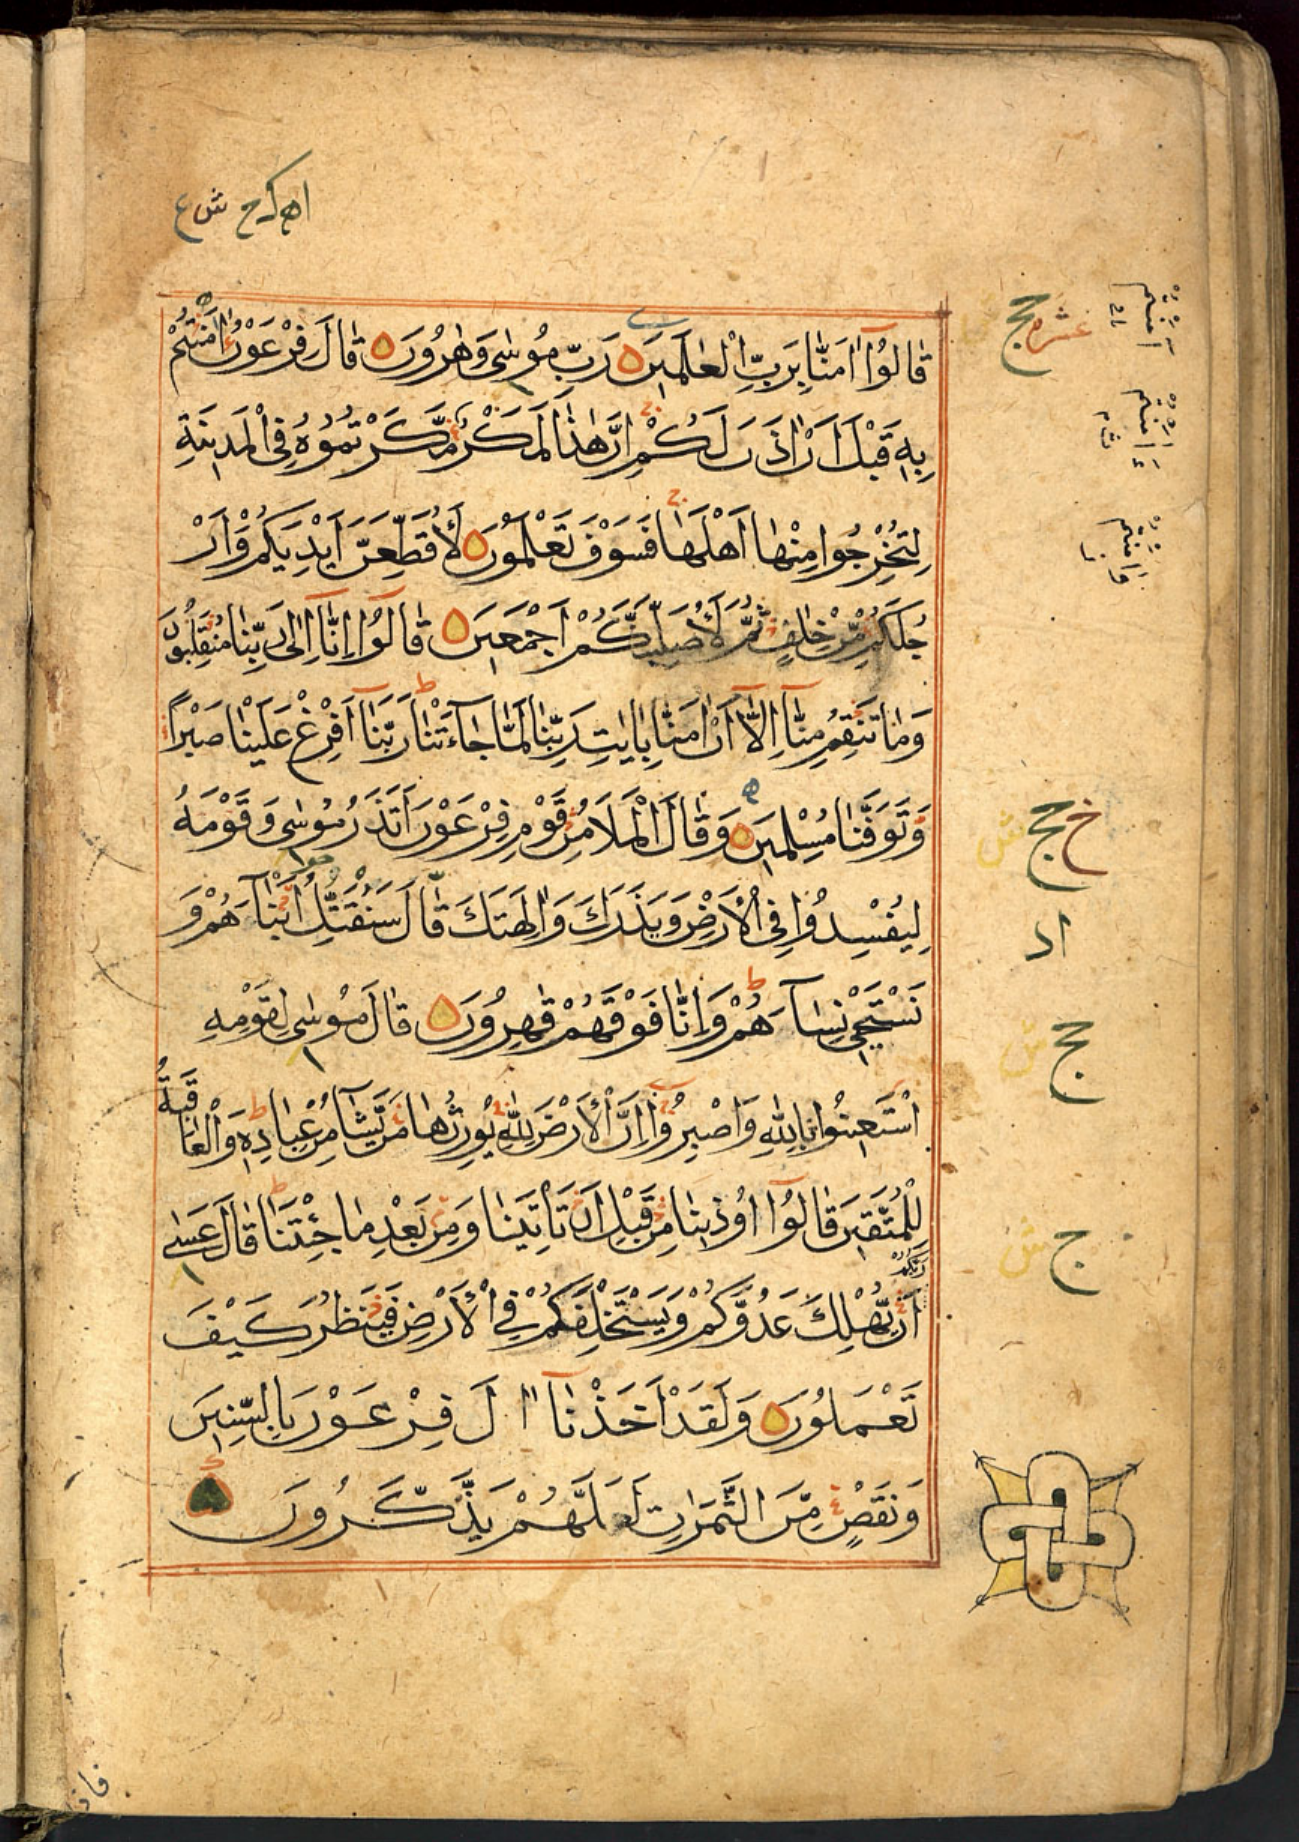 قَالُوٓا اٰمَنَّا بِرَبِّ الْعٰلَمِينَ رَبِّ مُوسٰى وَهٰرُونَ قَالَ فِرْعَوْنُ اٰمَنْتُمْ
بِهِ قَبْلَ اَنْ اٰذَنَ لَكُمْ اِنَّ هٰذَا لَمَكْرٌ مَّكَرْتُمُوهُ فِى الْمَدِينَةِ
لِتُخْرِجُوا مِنْهَا اَهْلَهَا فَسَوْفَ تَعْلَمُونَ لَاُقَطِّعَنَّ اَيْدِيَكُمْ وَاَرْ
جُلَكُمْ مِّنْ خِلَافٍ ثُمَّ لَاُصَلِّبَنَّكُمْ اَجْمَعِينَ قَالُوٓا اِنَّآ اِلٰى رَبِّنَا مُنْقَلِبُونَ
وَمَا تَنْقِمُ مِنَّآ اِلَّآ اَنْ اٰمَنَّا بِاٰيٰتِ رَبِّنَا لَمَّا جَآءَتْنَا رَبَّنَآ اَفْرِغْ عَلَيْنَا صَبْرًا
وَّتَوَفَّنَا مُسْلِمِينَ وَقَالَ الْمَلَاُ مِنْ قَوْمِ فِرْعَوْنَ اَتَذَرُ مُوسٰى وَقَوْمَهُ
لِيُفْسِدُوا فِى الْاَرْضِ وَيَذَرَكَ وَاٰلِهَتَكَ قَالَ سَنُقَتِّلُ اَبْنَآءَهُمْ وَ
نَسْتَحْيٖ نِسَآءَهُمْ وَاِنَّا فَوْقَهُمْ قٰهِرُونَ قَالَ مُوسٰى لِقَوْمِهِ
اسْتَعِينُوا بِاللّٰهِ وَاصْبِرُوٓا اِنَّ الْاَرْضَ لِلّٰهِ يُورِثُهَا مَنْ يَّشَآءُ مِنْ عِبَادِهِ وَالْعَاقِبَةُ
لِلْمُتَّقِينَ قَالُوٓا اُوذِينَا مِنْ قَبْلِ اَنْ تَاْتِيَنَا وَمِنْ بَعْدِ مَا جِئْتَنَا قَالَ عَسٰى رَبُّكُمْ
اَنْ يُّهْلِكَ عَدُوَّكُمْ وَيَسْتَخْلِفَكُمْ فِى الْاَرْضِ فَيَنْظُرَ كَيْفَ
تَعْمَلُونَ وَلَقَدْ اَخَذْنَآ اٰلَ فِرْعَوْنَ بِالسِّنِينَ
وَنَقْصٍ مِّنَ الثَّمَرٰتِ لَعَلَّهُمْ يَذَّكَّرُونَ